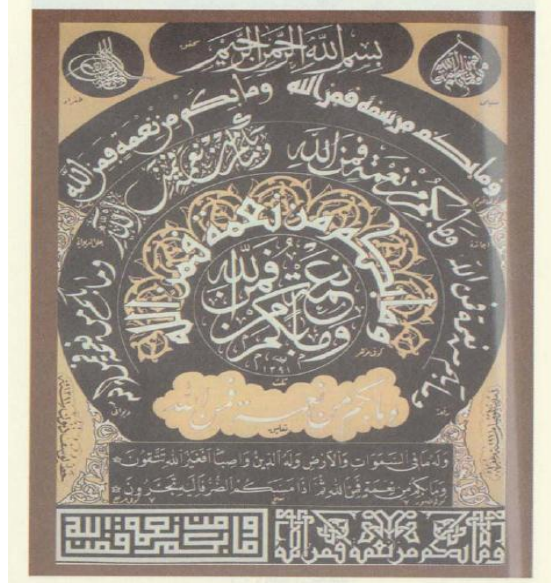 بسم الله الرحمن الرحيم
محقق
طغراء
سنبلي
وما بكم من نعمة فمن الله
وما بكم من نعمة فمن الله
وما بكم من نعمة فمن الله
وما بكم من نعمة فمن الله
جلي الديواني
اجازة
وما بكم من نعمة فمن الله
وما بكم من نعمة فمن الله
ديواني
وما بكم من نعمة فمن الله
كوفي مزهر
وما بكم من نعمة فمن الله
١٣٩١
ثلث
وما بكم من نعمة فمن الله
تعليق
وَلَهُ مَا فِي السَّمَوَاتِ وَالْأَرْضِ وَلَهُ الدِّينُ وَاصِبًا أَفَغَيْرَ اللَّهِ تَتَّقُونَ
وَمَا بِكُمْ مِنْ نِعْمَةٍ فَمِنَ اللَّهِ ثُمَّ إِذَا مَسَّكُمُ الضُّرُّ فَإِلَيْهِ تَجْأَرُونَ
وما بكم من نعمة فمن الله
وما بكم من نعمة فمن الله